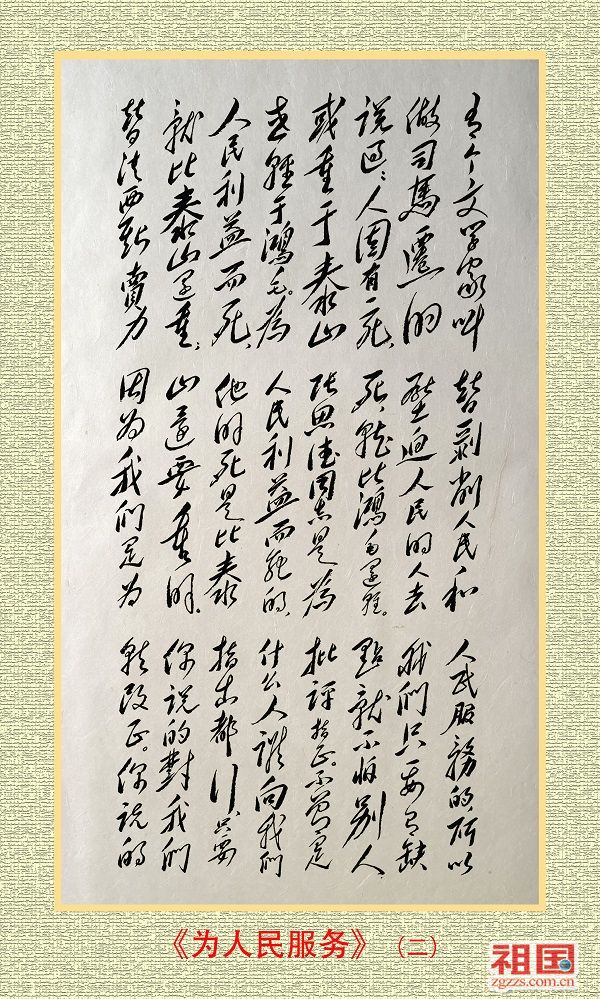 有个文学家叫
做司馬遷的
说过:人固有一死,
或重于泰山
或轻于鸿毛。为
人民利益而死,
就比泰山还重;
替法西斯賣力
替剥削人民和
壓迫人民的人去
死,就比鸿毛还轻。
张思德同志是为
人民利益而死的,
他的死是比泰
山還要重的。
因为我们是为
人民服務的,所以
我们只要有缺
點就不怕别人
批评指正。不管是
什么人谁向我们
指出都行。只要
你说的對我们
就改正。你说的
《为人民服务》(二)
祖国
zgzzs.com.cn